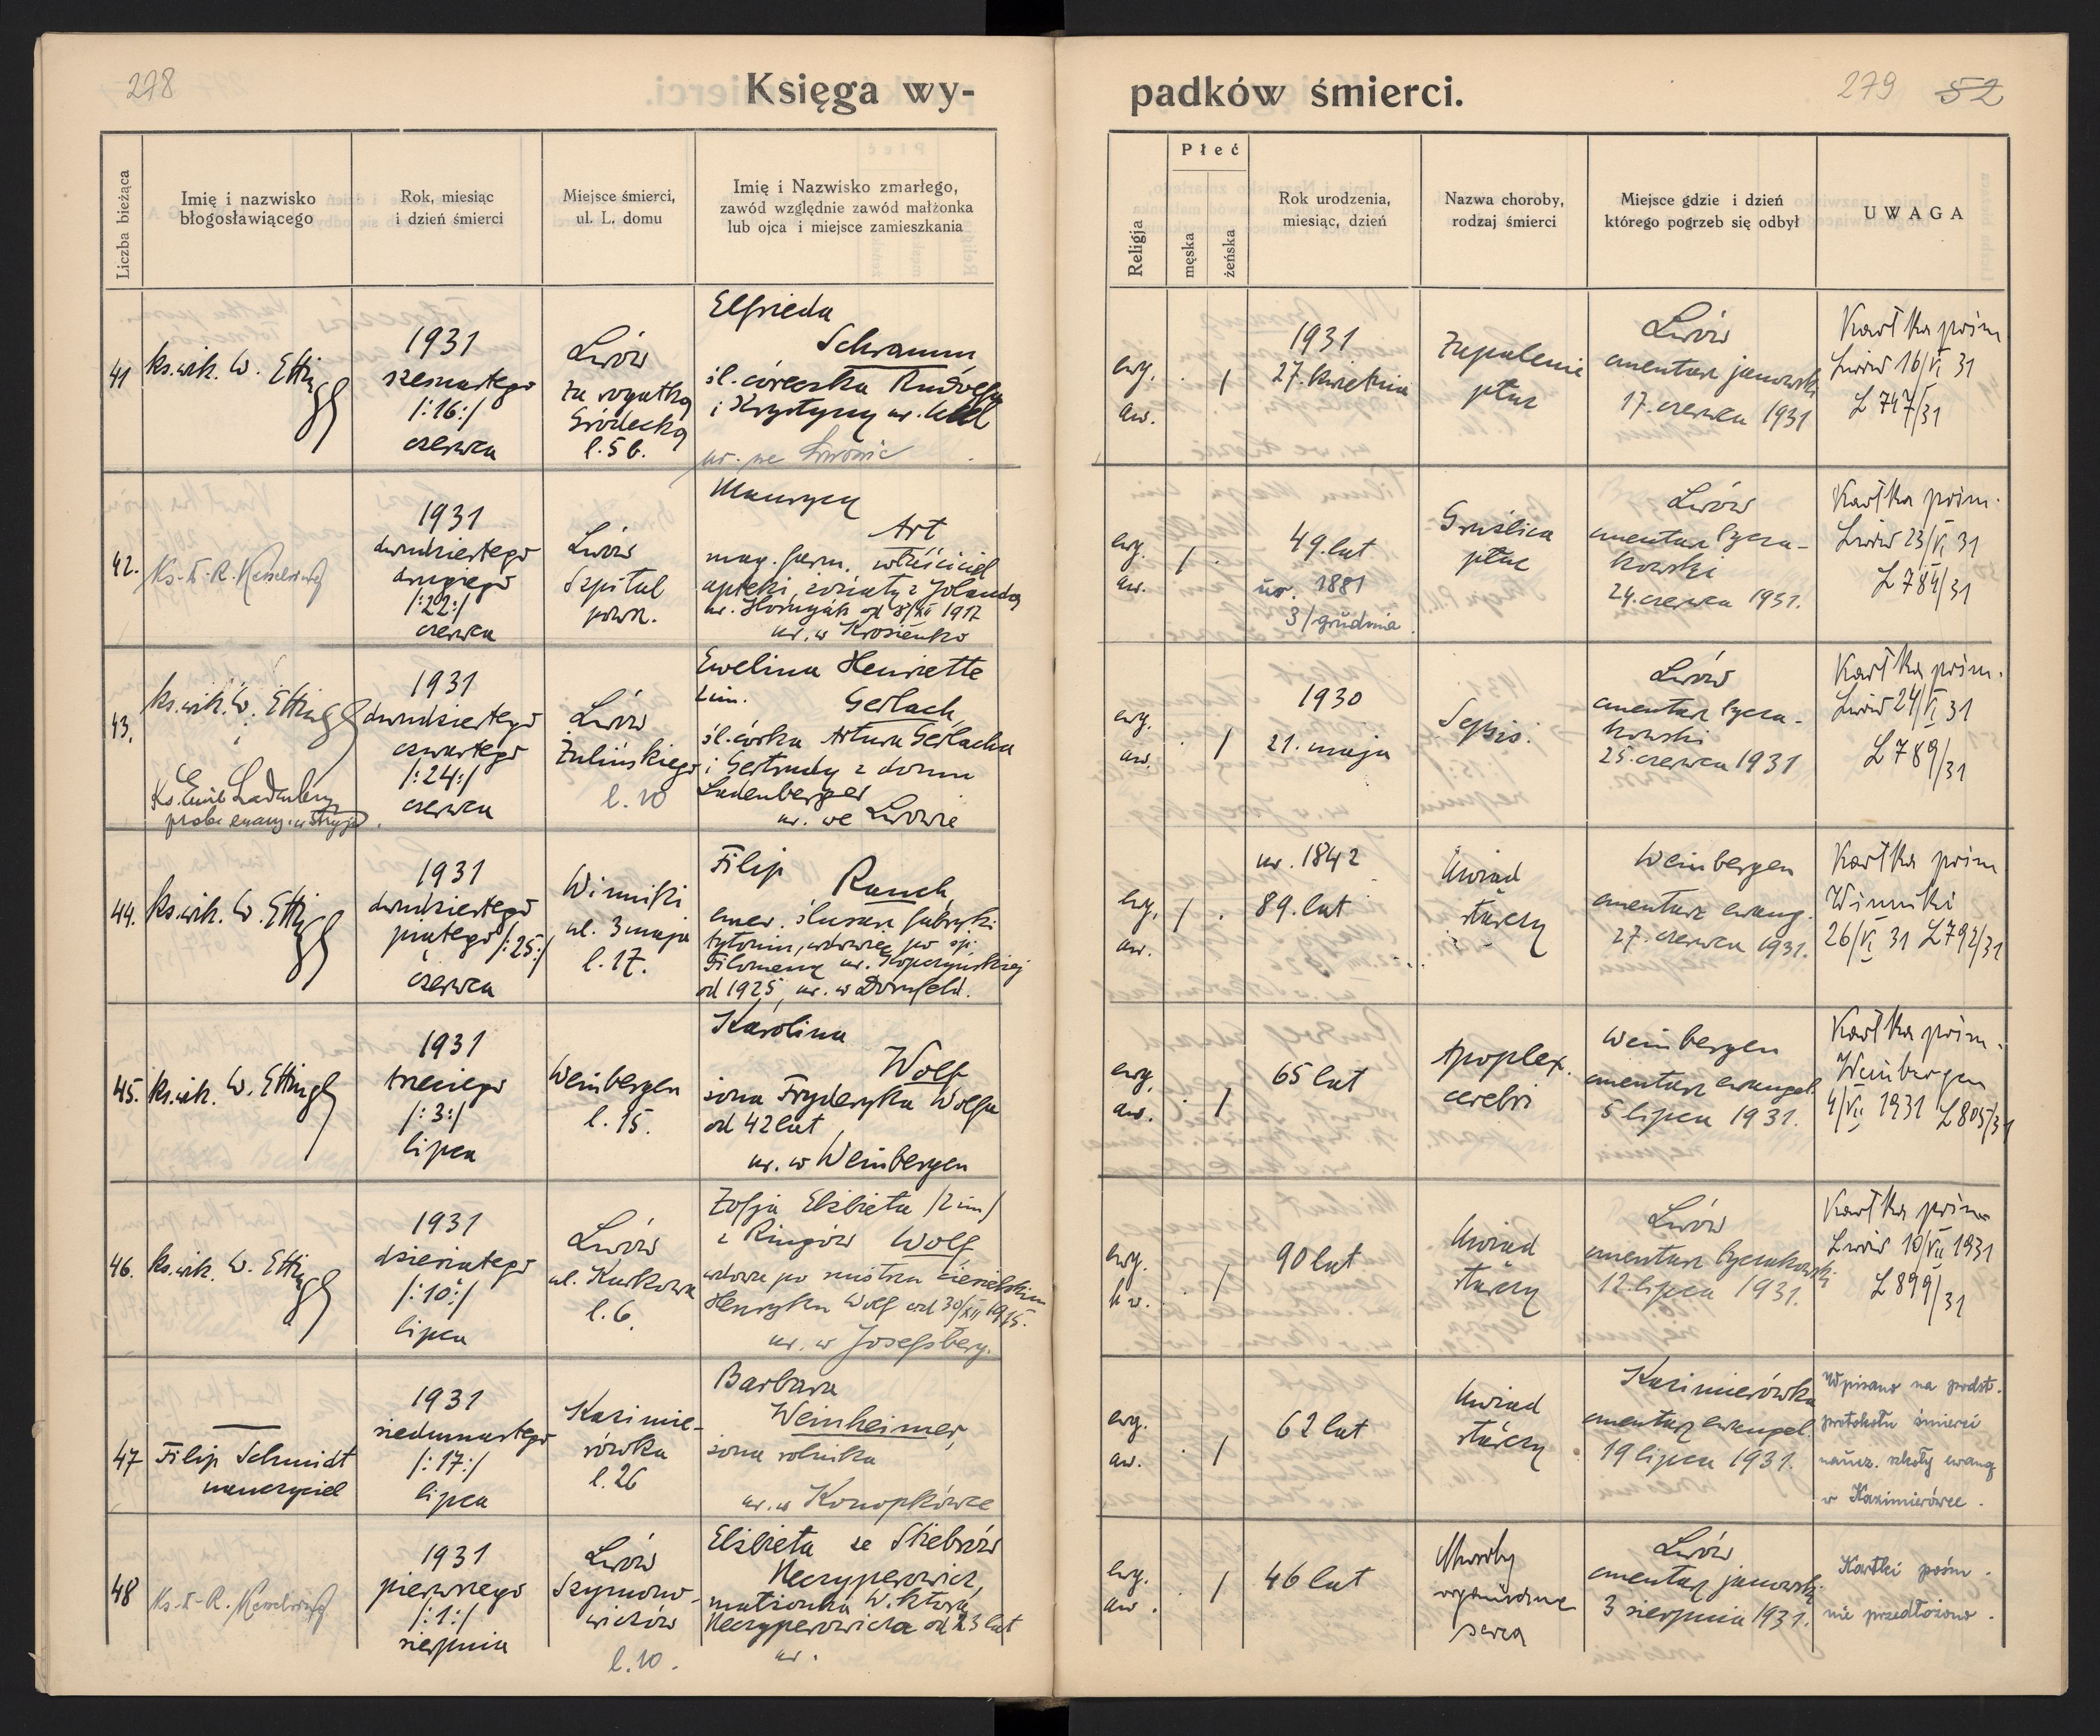 278
Księga wy-
padków śmierci.
279 52
Liczba bieżąca
Imię i nazwisko
błogosławiącego
Rok, miesiąc
i dzień śmierci
Miejsce śmierci,
ul. L. domu
Imię i Nazwisko zmarłego,
zawód względnie zawód małżonka
lub ojca i miejsce zamieszkania
Religja
Płeć
męska
żeńska
Rok urodzenia,
miesiąc, dzień
Nazwa choroby,
rodzaj śmierci
Miejsce gdzie i dzień
którego pogrzeb się odbył
UWAGA
41
ks. wik. W. Ettinger
1931
szesnastego
/:16:/
czerwca
Lwów
za rogatką
Gródecką
l. 5b.
Elfrieda
Schramm
śl. córeczka Rudolfa
i Krystyny ur.
ur. we Lwowie
ewg.
aw.
/
1931
27. kwietnia
Zapalenie
płuc
Lwów
cmentarz janowski
17. czerwca 1931
Kartka pośm
Lwów 16/VI 31
L 747/31
42.
Ks. D. R. Kesselring
1931
dwudziestego
drugiego
/:22:/
czerwca
Lwów
Szpital
powsz.
Maurycy
Art
mag. farm. właściciel
apteki, żonaty z Jolandą
ur. Hornyák od 8/XI 1917
ur. w Krosienko
ewg.
aw.
/
49. lat
ur. 1881
3/grudnia
Gruźlica
płuc
Lwów
cmentarz łycza-
kowski
24. czerwca 1931.
Kartka pośm.
Lwów 23/VI 31
L 784/31
43.
ks. wik. W. Ettinger
Ks. Emil Ladenberger
prob. ewang. w Stryju.
1931
dwudziestego
czwartego
/:24:/
czerwca
Lwów
Żulińskiego
l. 10
Ewelina Henriette
2 im. Gerlach,
śl. córka Artura Gerlacha
i Gertrudy z domu
Ladenberger
ur. we Lwowie
ewg.
aw.
/
1930
21. maja
Sepsis.
Lwów
cmentarz łycza-
kowski
25. czerwca 1931
Kartka pośm.
Lwów 24/VI 31
L 789/31
44.
ks. wik. W. Ettinger
1931
dwudziestego
piątego /:25:/
czerwca
Winniki
ul. 3 maja
l. 17.
Filip
Rauch,
emer. ślusarz fabryki
tytoniu, wdowiec po śp.
Filomeny ur. Kopczyńskiej
od 1925, ur. w Dornfeld.
ewg.
aw.
/
ur. 1842
89. lat
Uwiąd
starczy
Weinbergen
cmentarz ewang.
27. czerwca 1931.
Kartka pośm
Winniki
26/VI 31 L 792/31
45.
ks. wik. W. Ettinger
1931
trzeciego
/:3:/
lipca
Weinbergen
l. 15.
Karolina
Wolf
żona Fryderyka Wolfa
od 42 lat
ur. w Weinbergen
ewg.
aw.
/
65 lat
Apoplex.
cerebri
Weinbergen
cmentarz ewangel.
5 lipca 1931.
Kartka pośm.
Weinbergen
4/VII 1931 L 805/31
46.
ks. wik. W. Ettinger
1931
dziesiątego
/:10:/
lipca
Lwów
ul. Kurkowa
l. 6.
Zofja Elżbieta /2 im/
z Ringów Wolf,
wdowa po mistrzu ciesielskim
Henryku Wolf od 30/XII 1915.
ur. w Josefsberg.
ewg.
hw.
/
90 lat
Uwiąd
starczy
Lwów
cmentarz łyczakowski
12. lipca 1931.
Kartka pośm
Lwów 10/VII 1931
L 899/31
47
Filip Schmidt
nauczyciel
1931
siedemnastego
/:17:/
lipca
Kazimie-
rówka
l. 26
Barbara
Weinheimer,
żona rolnika
ur. w Konopkówce
ewg.
aw.
/
62 lat
Uwiąd
starczy
Kazimierówka
cmentarz ewangel.
19 lipca 1931.
Wpisano na podst.
protokołu śmierci
naucz. szkoły ewang
w Kazimierówce.
48
Ks. D. R. Kesselring
1931
pierwszego
/:1:/
sierpnia
Lwów
Szymono-
wiczów
l. 10.
Elżbieta ze Stiebrów
Neczyperowicz,
małżonka Wiktora
Neczyperowicza od 23 lat
ur.
ewg.
aw.
/
46 lat
Choroby
organiczne
serca
Lwów
cmentarz janowski
3 sierpnia 1931.
Kartki pośm.
nie przedłożono.